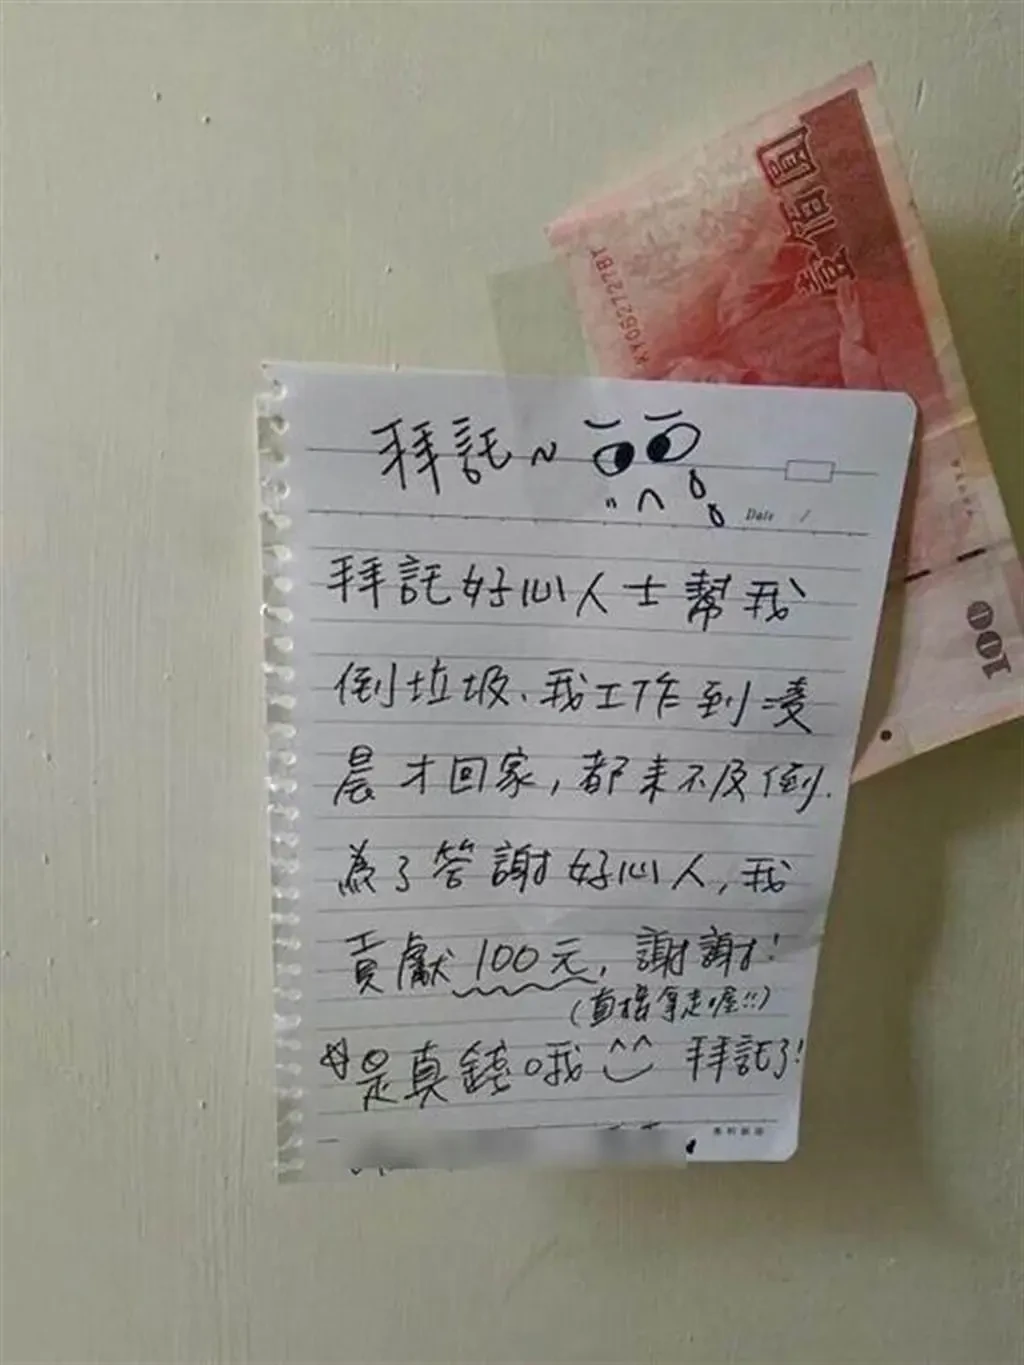 壹佰圓
KY052727BY
100
拜託~
Date /
拜託好心人士幫我
倒垃圾、我工作到凌
晨才回家,都來不及倒.
為了答謝好心人,我
貢獻100元,謝謝!
(直接拿走喔!!)
☆是真錢哦^^ 拜託了!